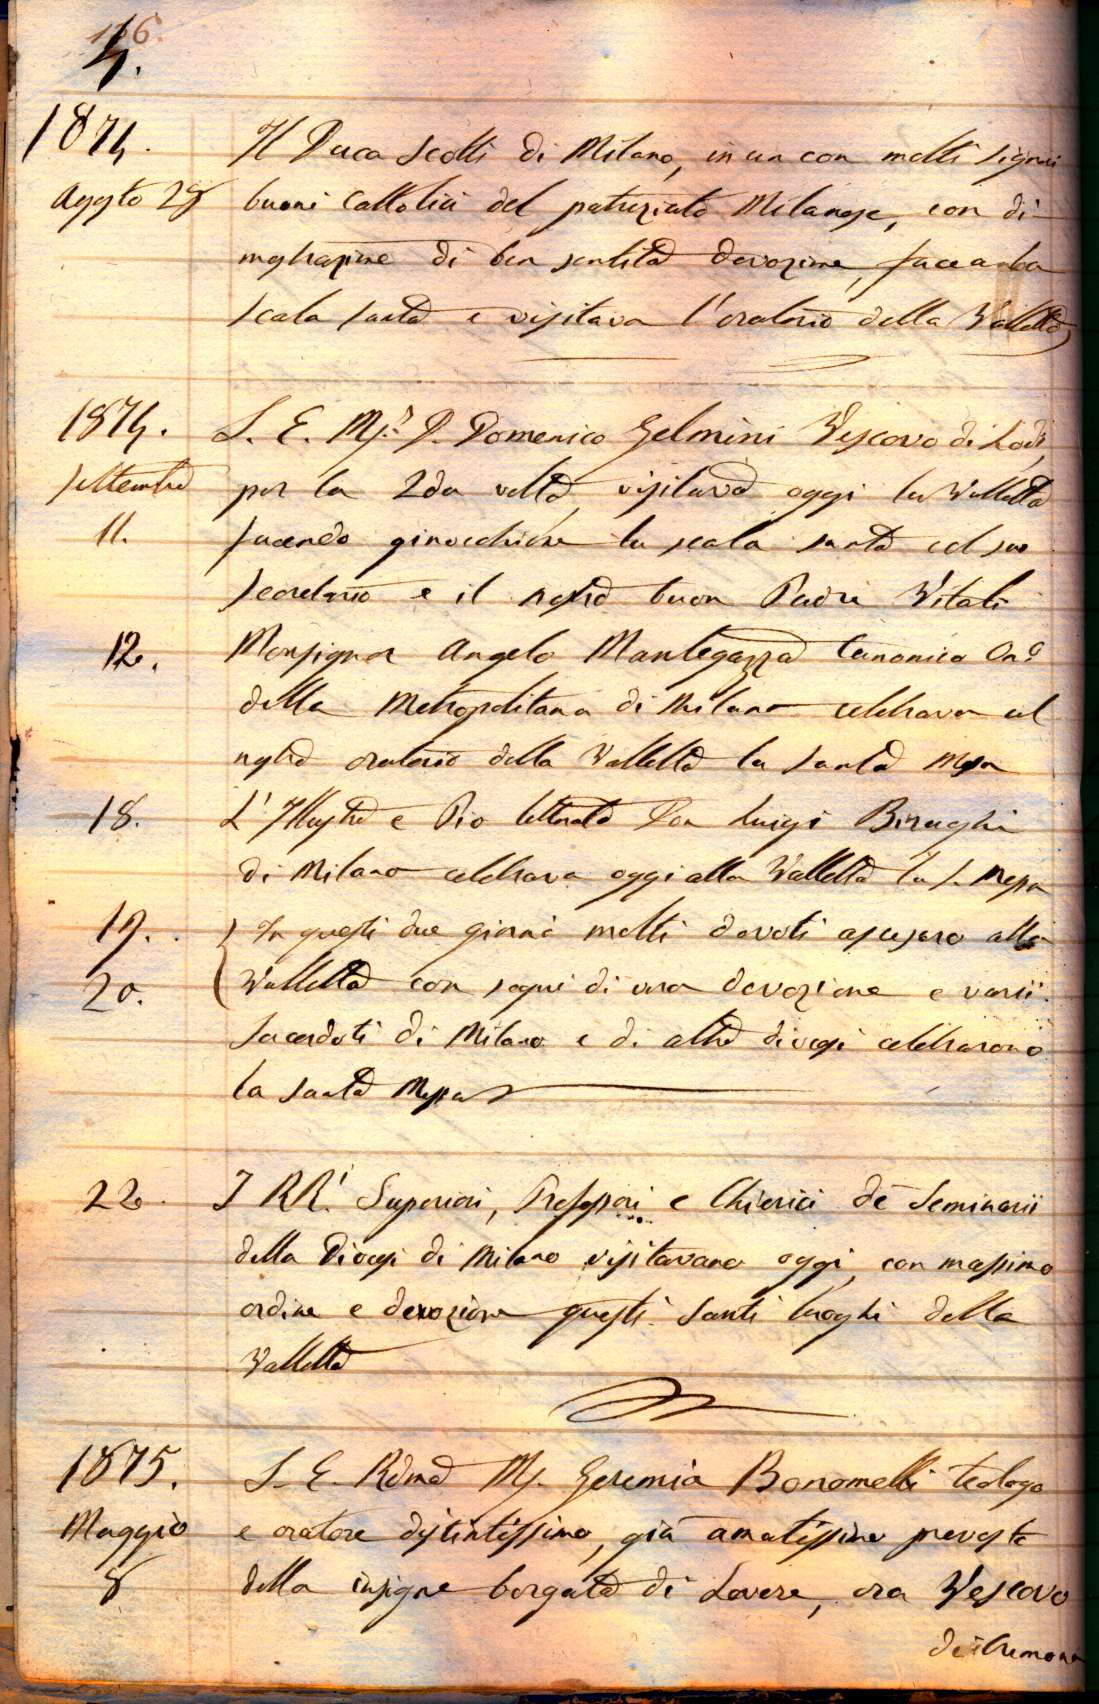 136.
4.
1874. Il Duca Scotti di Milano, in un con molti signori
Agosto 28 buoni Cattolici del patriziato Milanese, con di-
mostrazione di ben sentita devozione, facea la
scala santa e visitava l'oratorio della Valletta
1874. S. E. Mr. D. Domenico Gelmini Vescovo di Lodi,
settembre per la 2da volta, visitava oggi la Valletta
11. facendo ginocchione la scala santa col suo
secretario e il nostro buon Padre Vitali
12. Monsignor Angelo Mantegazza Canonico On.o
della Metropolitana di Milano celebrava al
nostro oratorio della Valletta la santa Messa
18. L'Illustre e Pio letterato Don Luigi Biraghi
di Milano celebrava oggi alla Valletta la S. Messa
19. In questi due giorni molti devoti ascesero alla
20. Valletta con segni di vera devozione e varii
sacerdoti di Milano e di altre diocesi celebrarono
la santa Messa
22 I RR.i Superiori, Professori e Chierici de' Seminarii
della Diocesi di Milano visitavano oggi, con massimo
ordine e devozione questi santi luoghi della
Valletta
1875. S. E. Rdma Mr. Geremia Bonomelli teologo
Maggio e oratore distintissimo, già amatissimo prevosto
8 della insigne borgata di Lovere, ora Vescovo
di Cremona